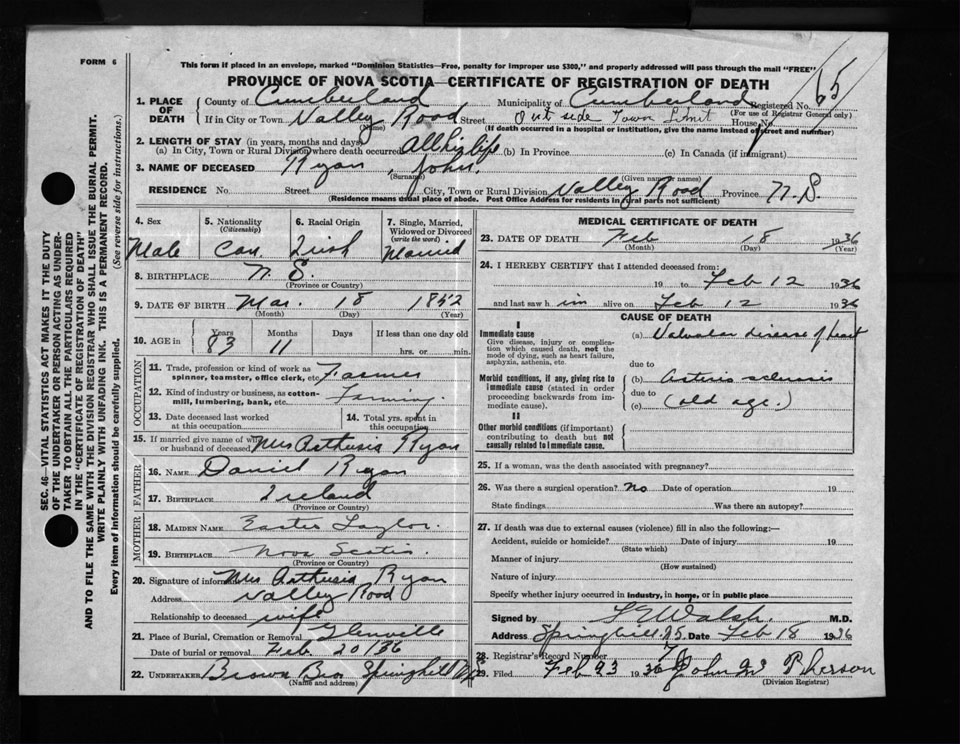 FORM 6
This form if placed in an envelope, marked "Dominion Statistics—Free, penalty for improper use $300," and properly addressed will pass through the mail "FREE"
PROVINCE OF NOVA SCOTIA—CERTIFICATE OF REGISTRATION OF DEATH
65
1. PLACE OF DEATH
County of Cumberland Municipality of Cumberland Registered No.
(For use of Registrar General only)
If in City or Town Valley Road Street Outside Town Limit House No.
(Name) (If death occurred in a hospital or institution, give the name instead of street and number)
2. LENGTH OF STAY (in years, months and days)
(a) In City, Town or Rural Division where death occurred All his life (b) In Province (c) In Canada (if immigrant)
3. NAME OF DECEASED Ryan, John.
(Surname) (Given name or names)
RESIDENCE No. Street City, Town or Rural Division Valley Road Province N.S.
(Residence means usual place of abode. Post Office Address for residents in rural parts not sufficient)
4. Sex Male
5. Nationality (Citizenship) Can.
6. Racial Origin Irish
7. Single, Married, Widowed or Divorced (write the word) Married
8. BIRTHPLACE N. S.
(Province or Country)
9. DATE OF BIRTH Mar. 18 1852
(Month) (Day) (Year)
10. AGE in Years Months Days If less than one day old
83 11 hrs. or min.
OCCUPATION
11. Trade, profession or kind of work as spinner, teamster, office clerk, etc. Farmer
12. Kind of industry or business, as cotton-mill, lumbering, bank, etc. Farming
13. Date deceased last worked at this occupation
14. Total yrs. spent in this occupation
15. If married give name of wife or husband of deceased Mrs Ryan
FATHER
16. NAME Daniel Ryan
17. BIRTHPLACE Ireland
(Province or Country)
MOTHER
18. MAIDEN NAME Easter Taylor.
19. BIRTHPLACE Nova Scotia.
(Province or Country)
20. Signature of informant Mrs Ryan
Address Valley Road
Relationship to deceased wife
21. Place of Burial, Cremation or Removal Glenville
Date of burial or removal Feb. 20/36
22. UNDERTAKER Brown Bros Springhill N.S.
(Name and address)
MEDICAL CERTIFICATE OF DEATH
23. DATE OF DEATH Feb 18 1936
(Month) (Day) (Year)
24. I HEREBY CERTIFY that I attended deceased from:
19 to Feb 12 1936
and last saw him alive on Feb 12 1936
CAUSE OF DEATH
I
Immediate cause
Give disease, injury or complication which caused death, not the mode of dying, such as heart failure, asphyxia, asthenia, etc.
(a) Valvular disease of heart
due to
Morbid conditions, if any, giving rise to immediate cause (stated in order proceeding backwards from immediate cause).
(b) Arterio-sclerosis
due to
(c) (old age.)
II
Other morbid conditions (if important) contributing to death but not causally related to immediate cause.
25. If a woman, was the death associated with pregnancy?
26. Was there a surgical operation? No Date of operation 19
State findings Was there an autopsy?
27. If death was due to external causes (violence) fill in also the following:—
Accident, suicide or homicide? Date of injury 19
(State which)
Manner of injury
(How sustained)
Nature of injury
Specify whether injury occurred in Industry, in home, or in public place
Signed by Walsh. M.D.
Address Springhill N.S. Date Feb 18 1936
28. Registrar's Record Number
29. Filed Feb 23 1936 John McPherson
(Division Registrar)
SEC. 46—VITAL STATISTICS ACT MAKES IT THE DUTY
OF THE UNDERTAKER OR PERSON ACTING AS UNDER-
TAKER TO OBTAIN ALL THE PARTICULARS REQUIRED
IN THE "CERTIFICATE OF REGISTRATION OF DEATH"
AND TO FILE THE SAME WITH THE DIVISION REGISTRAR WHO SHALL ISSUE THE BURIAL PERMIT.
WRITE PLAINLY WITH UNFADING INK. THIS IS A PERMANENT RECORD.
Every item of Information should be carefully supplied. (See reverse side for instructions.)